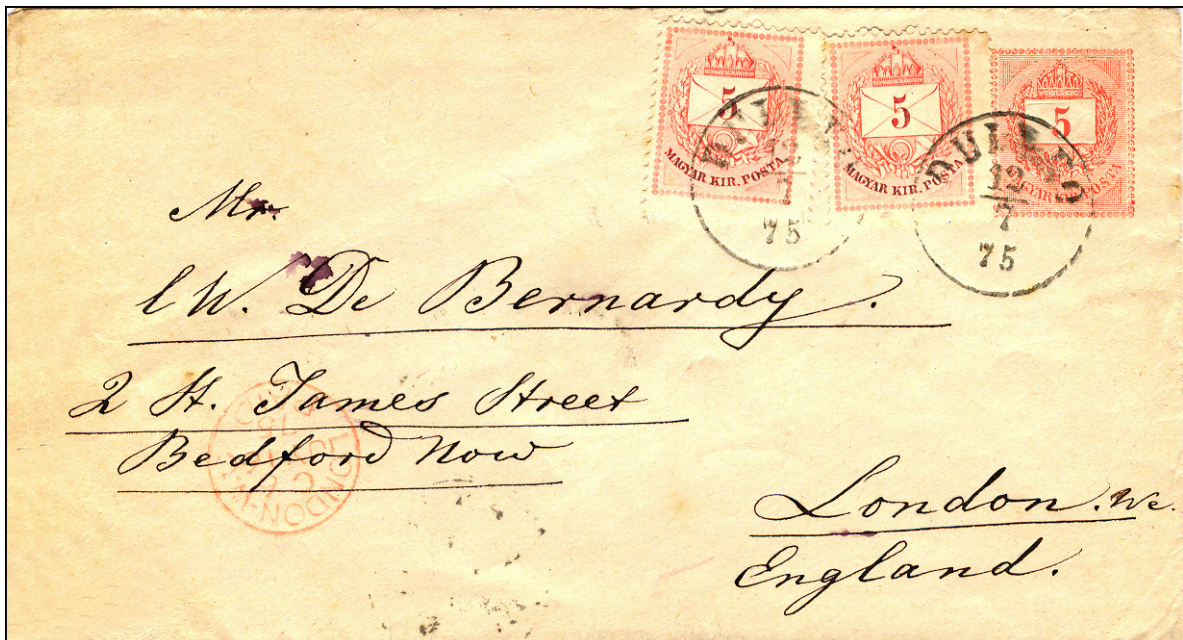 5
MAGYAR KIR. POSTA
5
MAGYAR KIR. POSTA
5
MAGYAR KIR. POSTA
75
12
7
75
Mr.
De Bernardy.
2 St. James Street
Bedford Now
London. Wc.
England.
LONDON